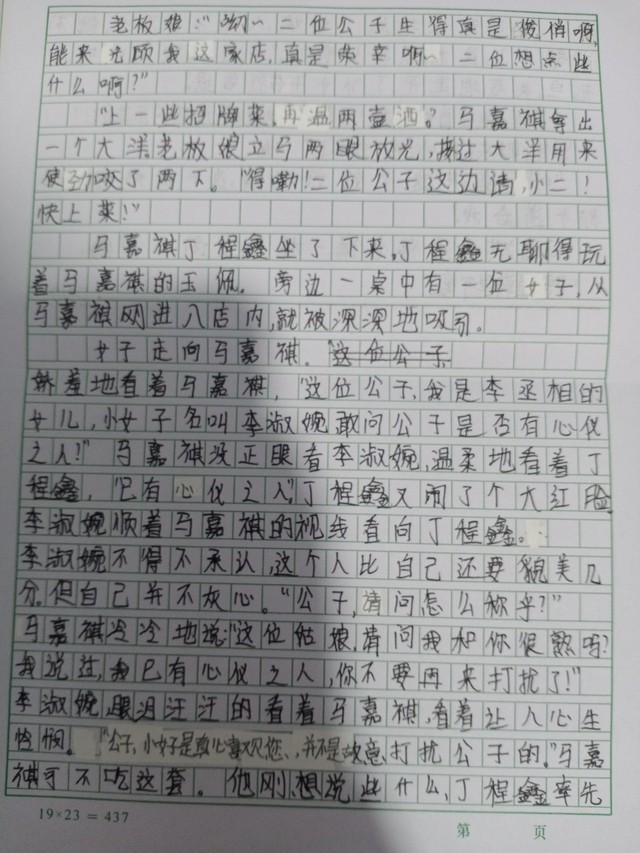 老板娘:“呦~二位公子生得真是俊俏啊,
能来光顾我这家店,真是荣幸啊~二位想点些
什么啊?”
“上一些招牌菜,再温两壶酒。”马嘉祺拿出
一个大洋老板娘立马两眼放光,接过大洋用来
使劲咬了两下。“得嘞!二位公子这边请,小二!
快上菜!”
马嘉祺丁程鑫坐了下来,丁程鑫无聊得玩
着马嘉祺的玉佩。旁边一桌中有一位女子,从
马嘉祺刚进入店内,就被深深地吸引。
女子走向马嘉祺。“这位公子
娇羞地看着马嘉祺,“这位公子,我是李丞相的
女儿,小女子名叫李淑婉敢问公子是否有心仪
之人?”马嘉祺没正眼看李淑婉,温柔地看着丁
程鑫,“已有心仪之人”丁程鑫又闹了个大红脸
李淑婉顺着马嘉祺的视线看向丁程鑫。
李淑婉不得不承认,这个人比自己还要貌美几
分。但自己并不灰心。“公子,请问怎么称乎?”
马嘉祺冷冷地说:“这位姑娘,请问我和你很熟吗?
我说过,我已有心仪之人,你不要再来打扰了!”
李淑婉眼泪汪汪的看着马嘉祺,看着让人心生
怜悯。“公子,小女子是真心喜欢您、并不是故意打扰公子的。”马嘉
祺可不吃这套。他刚想说些什么,丁程鑫率先
19×23=437
第 页